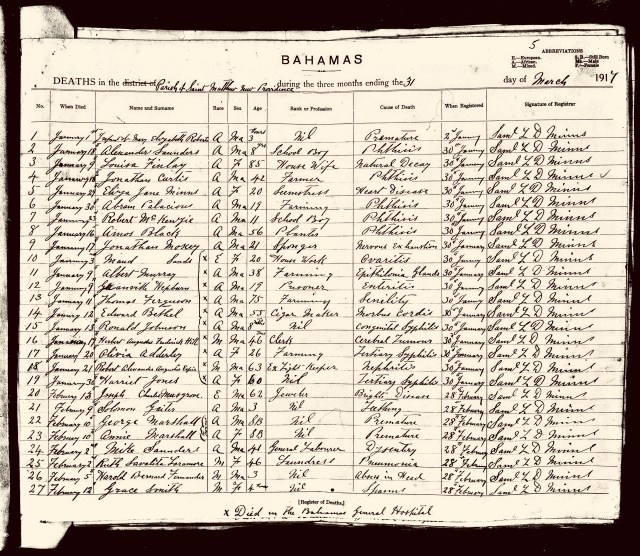 5
ABBREVIATIONS
E.—European. S.B.—Still Born
A.—African. Ma.—Male
M.—Mixed. F.—Female
BAHAMAS
DEATHS in the district of Parish of Saint Matthew New Providence, during the three months ending the 31 day of March 1917
No. When Died Name and Surname Race Sex Age Rank or Profession Cause of Death When Registered Signature of Registrar
Years
1 January 1st Infant of Mary Elizabeth Roberts A Ma 3 Nil Premature 2d January Saml L D Minns
2 January 18 Alexander Saunders A Ma 8 School Boy Phthisis 30th January Saml L D Minns
3 January 9 Louisa Finlay A F 85 House Wife Natural Decay 30th January Saml L D Minns
4 January 18 Jonathan Curtis A Ma 42 Farmer Phthisis 30th January Saml L D Minns
5 January 27 Eliza Jane Minns A F 20 Seamstress Heart Disease 30th January Saml L D Minns
6 January 30 Abram Palacious A Ma 19 Farming Phthisis 30th January Saml L D Minns
7 January 23 Robert McKenzie A Ma 11 School Boy Phthisis 30th January Saml L D Minns
8 January 16 Amos Black A Ma 56 Planter Phthisis 30th January Saml L D Minns
9 January 17 Jonathan Moxey A Ma 21 Sponger Nervous Exhaustion 30th January Saml L D Minns
10 January 3 Maud Sands x E F 20 House Work Ovaritis 30th January Saml L D Minns
11 January 9 Albert Murray x A Ma 38 Farming Glands 30th January Saml L D Minns
12 January 9 Hepburn x A Ma 19 Prisoner Enteritis 30th January Saml L D Minns
13 January 11 Thomas Ferguson x A Ma 75 Farming Senility 30th January Saml L D Minns
14 January 12 Edward Bethel x A Ma 55 Cigar Maker Morbus Cordis 30th January Saml L D Minns
15 January 13 Ronald Johnson x A Ma 8 Nil Congenital Syphilis 30th January Saml L D Minns
16 January 17 Herbert Augustus Frederick Hill x M Ma 46 Clerk Cerebral Tumour 30th January Saml L D Minns
17 January 20 Olivia Adderley x A F 26 Farming Tertiary Syphilis 30th January Saml L D Minns
18 January 21 Robert Alexander Augustus x M Ma 63 Ex Light Keeper Nephritis 30th January Saml L D Minns
19 January 30 Harriet Jones x A F 60 Nil Tertiary Syphilis 30th January Saml L D Minns
20 February 13 Joseph Musgrove E Ma 62 Jeweler Brights Disease 28th February Saml L D Minns
21 February 9 Solomon A Ma 3 Nil Teething 28th February Saml L D Minns
22 February 10 George Marshall A Ma SB Nil Premature 28th February Saml L D Minns
23 February 10 Annie Marshall A F SB Nil Premature 28th February Saml L D Minns
24 February 2 Mike Saunders A Ma 41 General Labourer Dysentry 28th February Saml L D Minns
25 February 2 Ruth M F 46 Laundress Pneumonia 28th February Saml L D Minns
26 February 5 Harold Bernard Fernander M Ma 3 Nil Abscess in Head 28th February Saml L D Minns
27 February 12 Grace Smith M F 4 Nil Spasms 28th February Saml L D Minns
[Register of Deaths.]
x Died in the Bahamas General Hospital